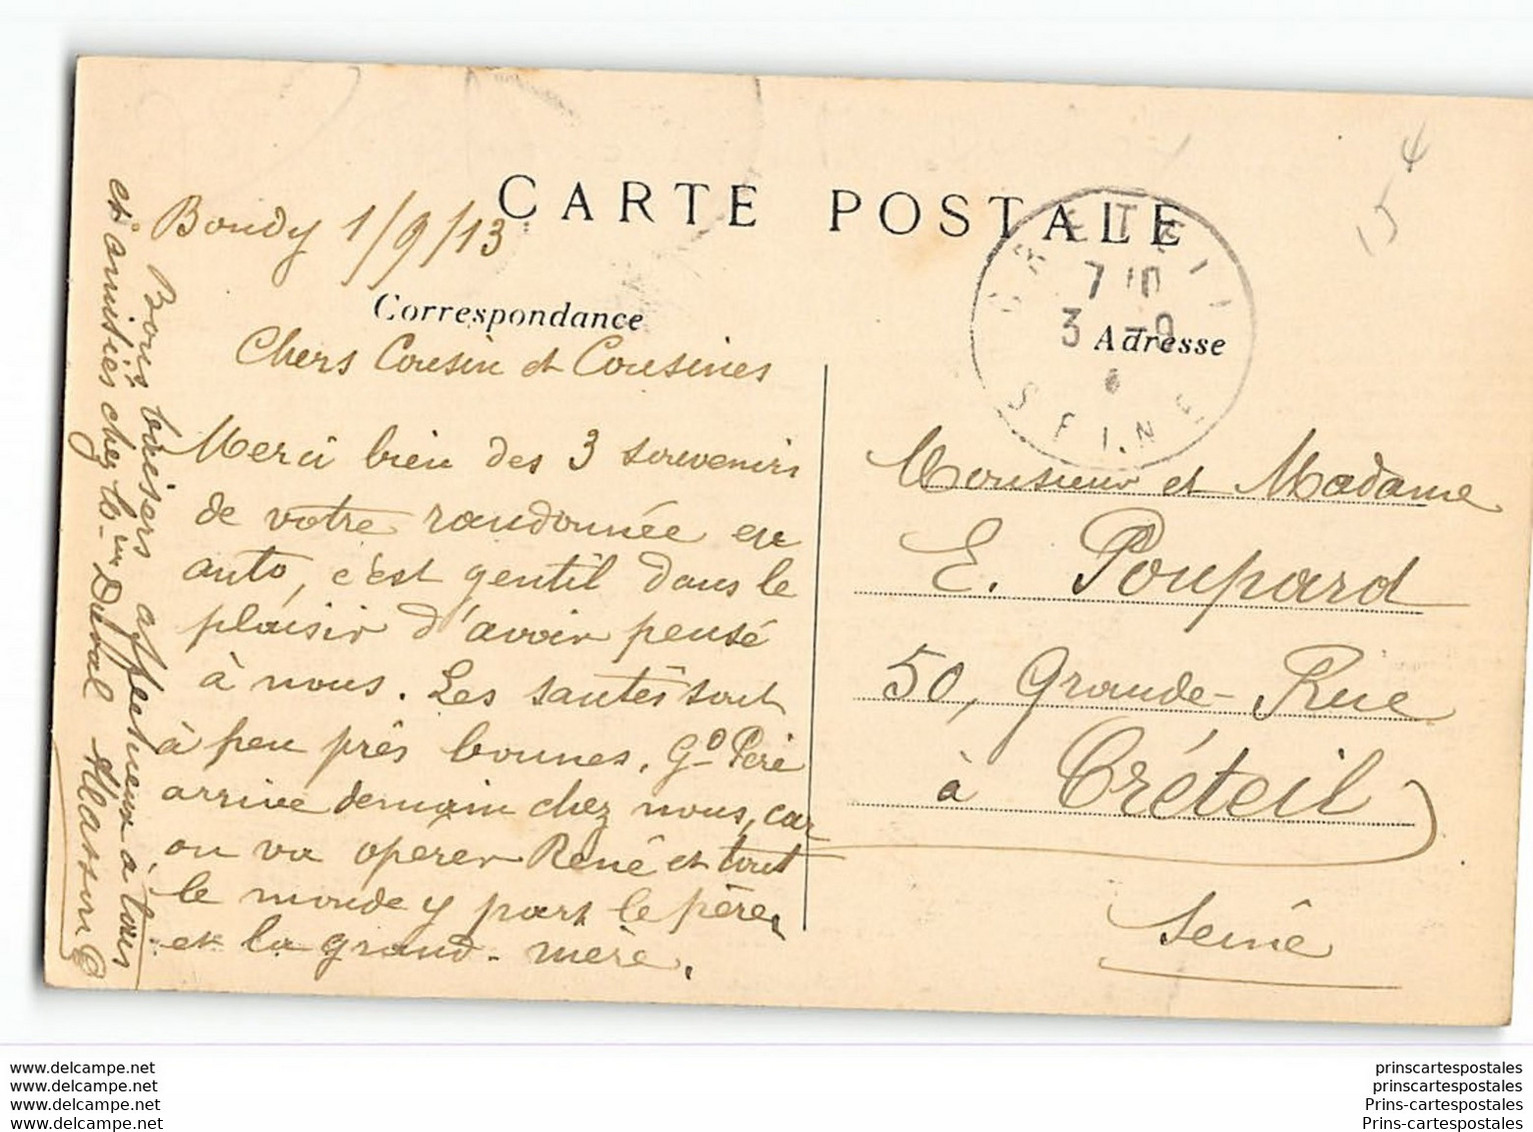 CARTE POSTALE
Bondy 1/9/13
Correspondance
Chers Cousin et Cousines
Merci bien des 3 souvenirs
de votre randonnée en
auto, c'est gentil dans le
plaisir d'avoir pensé
à nous. Les santés sont
à peu près bonnes. Gd Père
arrive demain chez nous, car
on va opérer René et tout
le monde y part le père
et la grand-mère.
Bons baisers affectueux à tous
et amitiés chez Duval Masson
CRETEIL
7 10
3 -9
SEINE
Adresse
Monsieur et Madame
E. Poupard
50, Grande-Rue
à Créteil
Seine
www.delcampe.net
www.delcampe.net
www.delcampe.net
www.delcampe.net
prinscartespostales
prinscartespostales
Prins-cartespostales
Prins-cartespostales